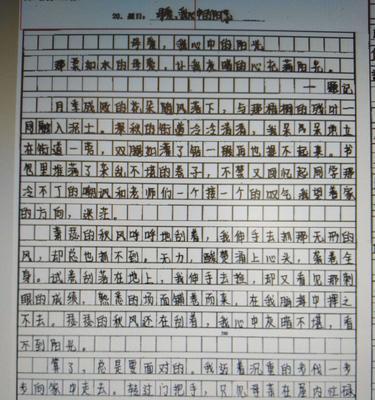 20. 题目：母爱，我心中的阳光
母爱，我心中的阳光
那柔如水的母爱，让我灰暗的心充满阳光。
——题记
月季成败的花朵随风落下，与那稀稀的残叶一
同融入泥土。深秋的街道冷冷清清，我呆呆地立
在街道一旁，双脚如灌了铅一般再也提不起来。书
包里堆满了杂乱不堪的卷子，不禁又回忆起同学着那
冷不丁的嘲讽和老师们一个接一个的叹气，我望着家
的方向，迷茫。
萧瑟的秋风呼呼地刮着，我伸手去抓那无形的
风，却总也抓不到。无力，酸涩涌上心头，席卷全
身。试卷刮落在地上，我伸手去捡，却又看见那刺
眼的成绩，熟悉的场面铺卷而来，在我脑海中挥之
不去。瑟瑟的秋风还在刮着，我心中灰暗不堪，看
不到阳光。
算了，总是要面对的。我迈着沉重的步伐一步
步向家中走去。轻过门把手，只见母亲在屋内忙碌